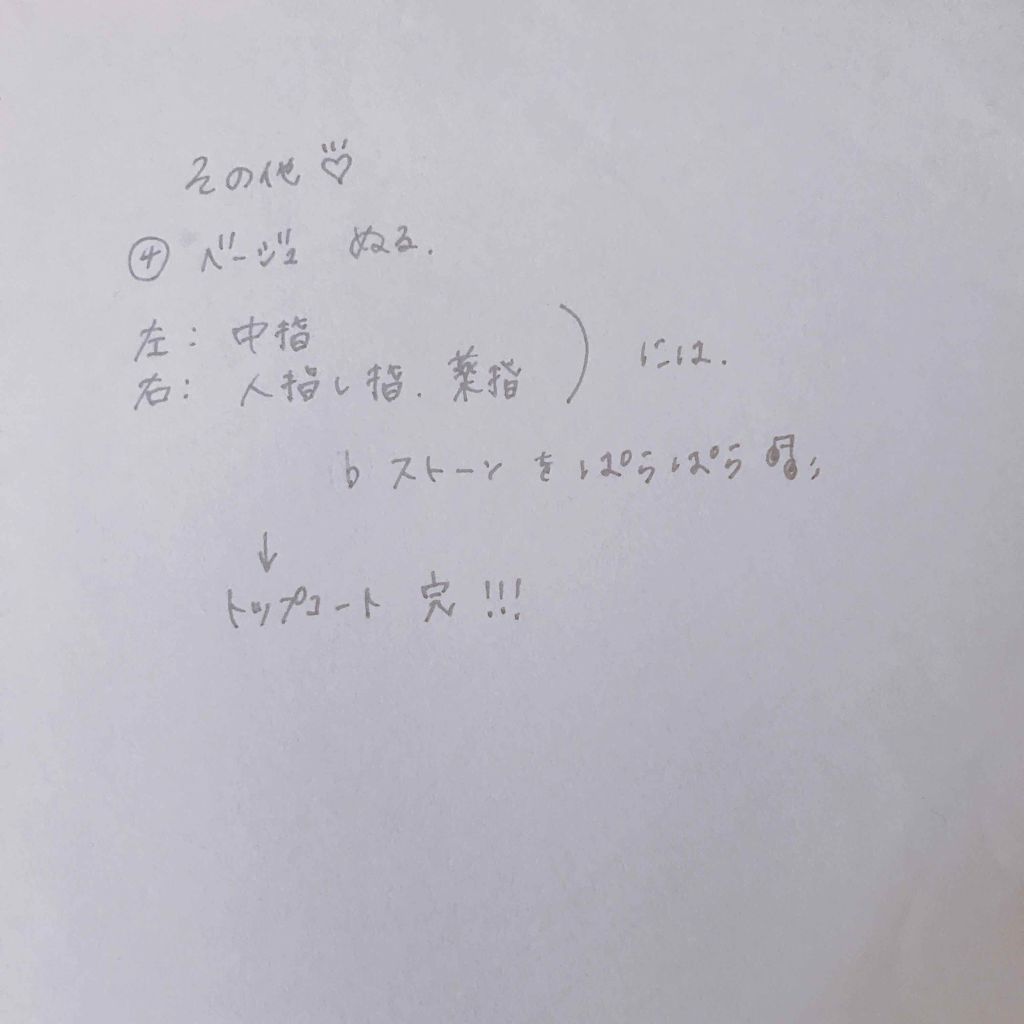 その他♡
④ ベージュ ぬる.
左: 中指
右: 人指し指. 薬指 ) には.
b ストーンをぱらぱら♫
↓
トップコート 完 !!!